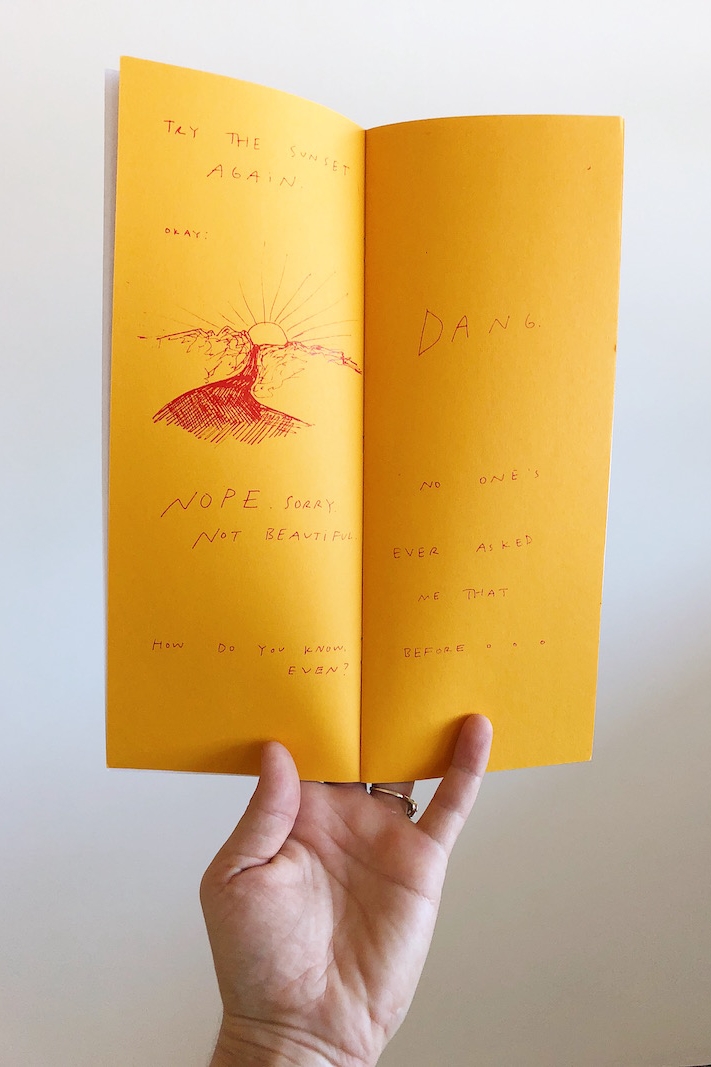 TRY THE SUNSET
AGAIN.
OKAY:
NOPE. SORRY.
NOT BEAUTIFUL.
HOW DO YOU KNOW,
EVEN?
DANG.
NO ONE'S
EVER ASKED
ME THAT
BEFORE...